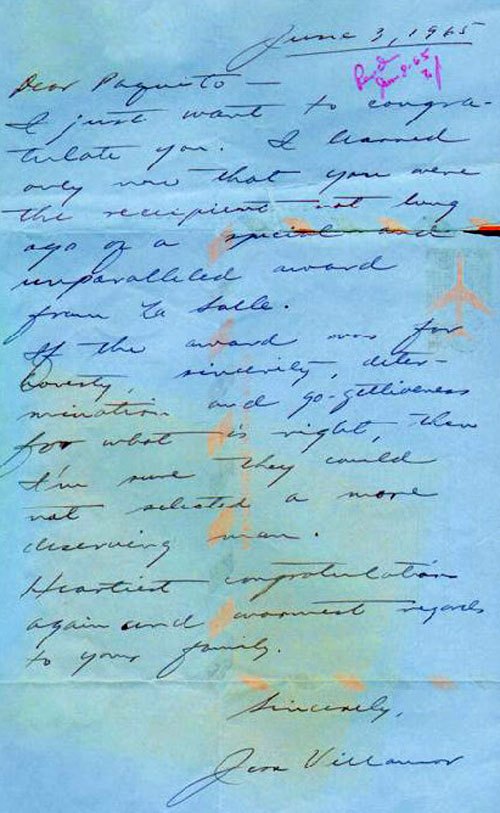 June 3, 1965
Rec'd
Jun 8-65
Dear Paquito —
I just want to congra-
tulate you. I learned
only now that you were
the recipient not long
ago of a special and
unparalleled award
from La Salle.
If the award was for
honesty, sincerity, deter-
mination and go-gettiveness
for what is right, then
I'm sure they could
not selected a more
deserving man.
Heartiest congratulations
again and warmest regards
to your family.
Sincerely,
Jess Villamor